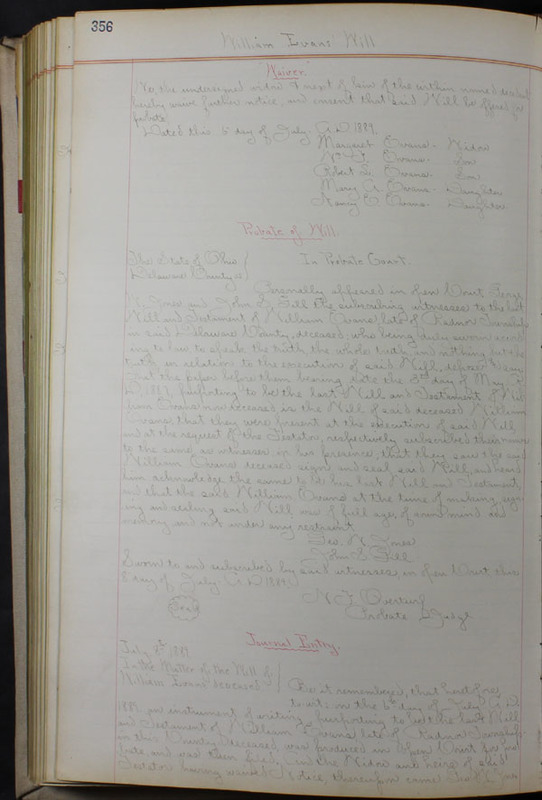 356
William Evans' Will
Waiver.
We, the undersigned widow & next of kin of the within named decedent
hereby waive further notice, and consent that said Will be offered for
probate.
Dated this 5 day of July A.D. 1889.
Margaret Evans. Widow
Wm. Evans. Son
Robert Evans. Son
Mary A. Evans. Daughter
Nancy E. Evans. Daughter
Probate of Will.
The State of Ohio
In Probate Court.
Delaware County ss
Personally appeared in open Court George
and John S. Gill the subscribing witnesses to the last
Will and Testament of William Evans, late of Radnor Township
in said Delaware County, deceased; who being duly sworn accord-
ing to law to speak the truth, the whole truth, and nothing but the
truth, in relation to the execution of said Will, depose & say
that the paper before them bearing date the 3d day of May A.
D. 1887, purporting to be the last Will and Testament of Wil-
liam Evans now deceased is the Will of said deceased William
Evans; that they were present at the execution of said Will,
and at the request of the Testator, respectively subscribed their names
to the same, as witnesses in his presence; that they saw the said
William Evans deceased sign and seal said Will, and heard
him acknowledge the same to be his last Will and Testament;
and that the said William Evans at the time of making, sign-
ing and sealing said Will was of full age, of sound mind and
memory and not under any restraint.
Geo. W.
John S. Gill
Sworn to and subscribed by said witnesses, in open Court this
8 day of July A.D. 1889.
Seal
Overturf
Probate Judge
Journal Entry.
July 8th, 1889.
In the Matter of the Will of
William Evans deceased
Be it remembered, that heretofore,
to wit: on the day of July A.D.
1889, an instrument of writing purporting to be the last Will
and Testament of William Evans late of Radnor Township
in this County, deceased was produced in Open Court for pro-
bate, and was then filed, and the Widow and heirs of said
Testator having waived Notice, thereupon came